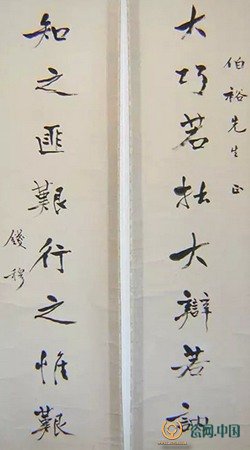 伯裕先生正
大巧若拙大辯若訥
知之匪艱行之惟艱
錢穆
谷网.中国